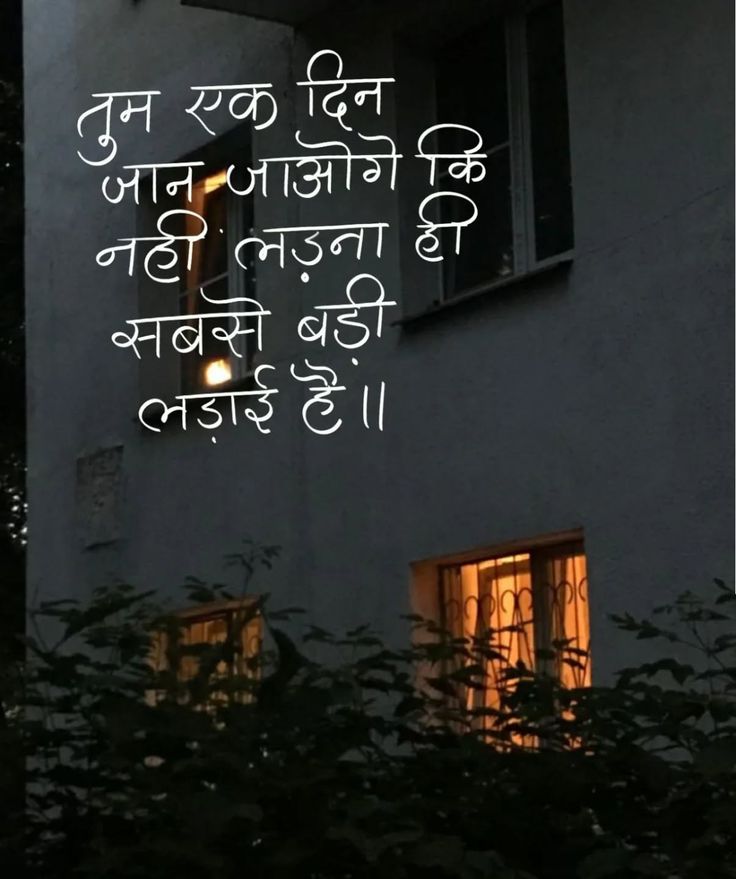 तुम एक दिन
जान जाओगे कि
नहीं लड़ना ही
सबसे बड़ी
लड़ाई है ॥